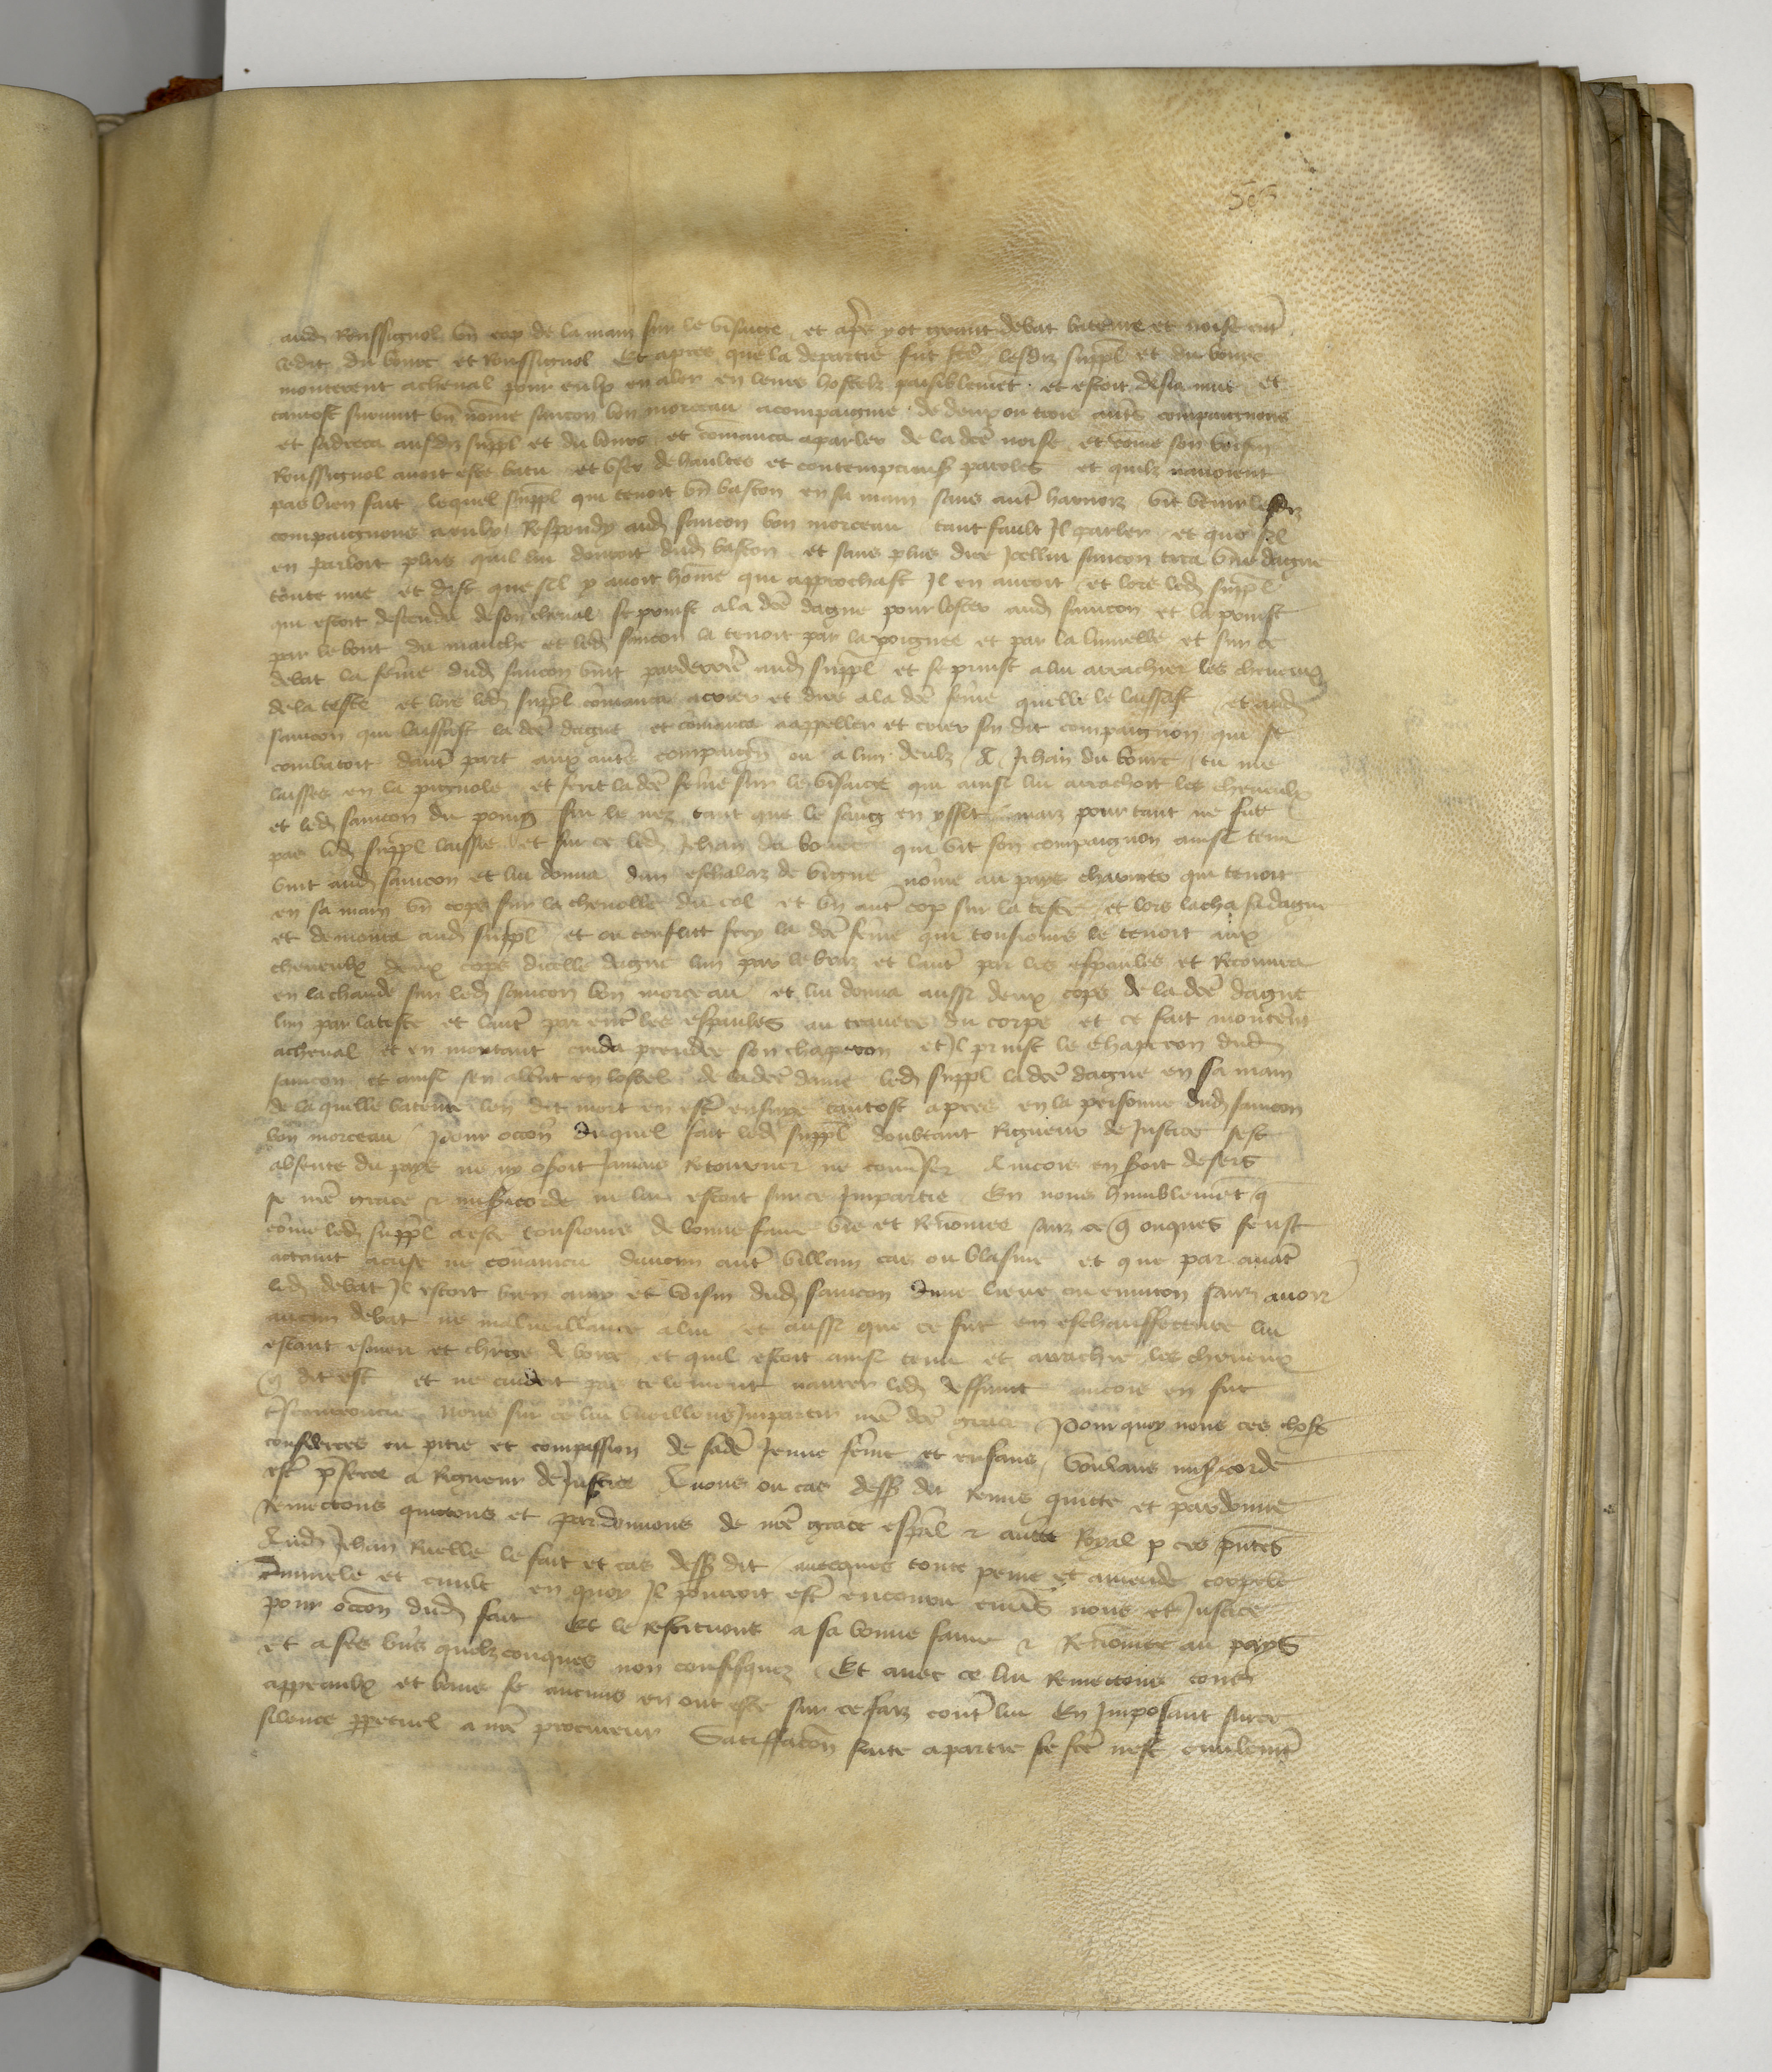 aud Roussignol un cop de la main sur le visaige et apres y ot grant debat bateure et noise entre
ledit du bourc et Roussignol Et apres que la departie fut fcte lesdiz suppl et du bourc
monterent a cheval pour eulx en aler en leurs hostelz paisiblement et estoit desia nuit et
tantost survint un nome sancon bon morceau acompaigne de deux ou trois autres compaignons
et sadreca ausdiz suppl et du bourc et comanca a parler de la dce noise et come son voisin
Roussignol avoit este batu et user de haultes et contempcieuses paroles et quilz navoient
pas bien fait lequel suppl qui tenoit un baston en sa main sans autre harnoiz vit venir lesdiz
compaignons a eulx Respondy aud sancon bon morceau tant fault Il parler et que sil
en parloit plus quil lui donroit dud baston et sans plus dire Icellui sancon tira une dague
toute nue et dist que sil y avoit home qui approchast Il en auroit et lors led suppl
qui estoit descendu de son cheval se prinst a la dce dague pour loster aud sancon et la prinst
par le bout du manche et led sancon la tenoit par la poignee et par la lumelle et sur ce
debat la feme dud sancon vint par derriere aud suppl et se prinst a lui arrachier les cheveux
de la teste et lors led suppl comanca a crier et dire a la dce feme quelle le laissast et aud
sancon qui laissast la dce dague et comanca a appeller et crier son dit compaignon qui se
combatoit dautre part aux autres compaignons ou a lun deulx A Jehan du bourc tu me
laisses en la pignole et ferit la dce feme sur le visaige qui ainsi lui arrachoit les cheveulx
et led sancon du poing sur le nez tant que le sang en yssit maiz pourtant ne fut
pas led suppl laissie et sur ce led Jehan du bourc qui vit son compaignon ainsi tenu
vint aud sancon et lui donna dun eschalaz de vigne nome au pays charnier qui tenoit
en sa main un cops sur la chevolle du col et un autre cop sur la teste et lors lacha sa dague
et demoura aud suppl et ou conflict fery la dce feme qui tousiours le tenoit aux
cheveulx deux cops dicelle dague lun par le braz et lautre par les espaules et Retourna
en la chaude sur led sancon bon morceau et lui donna aussi deux cops de la dce dague
lun par la teste et lautre par entre les espaules au travers du corps et ce fait monterent
a cheval et en montant cuida prendre son chaperon et Il prinst le chaperon dud
sancon et ainsi sen alerent en lostel de ladce dame led suppl ladce dague en sa main
de la quelle bateure len dit mort en estre ensuye tantost apres en la personne dud sancon
bon morceau Pour occon duquel fait led suppl doubtant Rigueur de Justice sest
absente du pays ne ny oseroit Jamais Retourner ne converser Aincois en seroit desers
se nre grace & misericorde ne lui estoit sur ce Impartie En nous humblement que
come led suppl a este tousiours de bonne fame vie et Renomee sanz ce que onques feust
attaint acuse ne convaincu daucun autre villain cas ou blasme et que par avant
led debat Il estoit bien amy et voisin dud sancon dune lieue ou environ sanz avoir
aucun debat ne malveillance a lui et aussi que ce fut en eschauffeture lui
estant esmeu et chargie de boire et quil estoit ainsi tenu et arrachie les cheveux
que dit est et ne cuidoit pas telement navrer led deffunct ancois en fut
tres courroucie Nous sur ce lui vueillons Impartir nre dce grace Pour quoy nous ces choses
considerees ou pitie et compassion de sade Jeune feme et enfans voulans misericorde
estre preferee a Rigueur de Justice Avons ou cas dessus dit Remis quitte et pardonne
Remectons quictons et pardonnons de nre grace especial & aucte Royal p ces pntes
Aud Jehan Ruelle le fait et cas dessus dit avecques toute peine et amende corpele
criminele et civile en quoy Il pourroit estre encouru envers nous et Justice
pour occon dud fait Et le restituons a sa bonne fame & Renomee au pays
et a ses biens quelzconques non confisquez Et avec ce lui Remectons tous
appeaulx et bans se aucuns en ont este sur ce faiz contre lui En Imposant sur ce
silence perpetuel a nre procureur Satisfaction faite a partie se fcte nest civilement